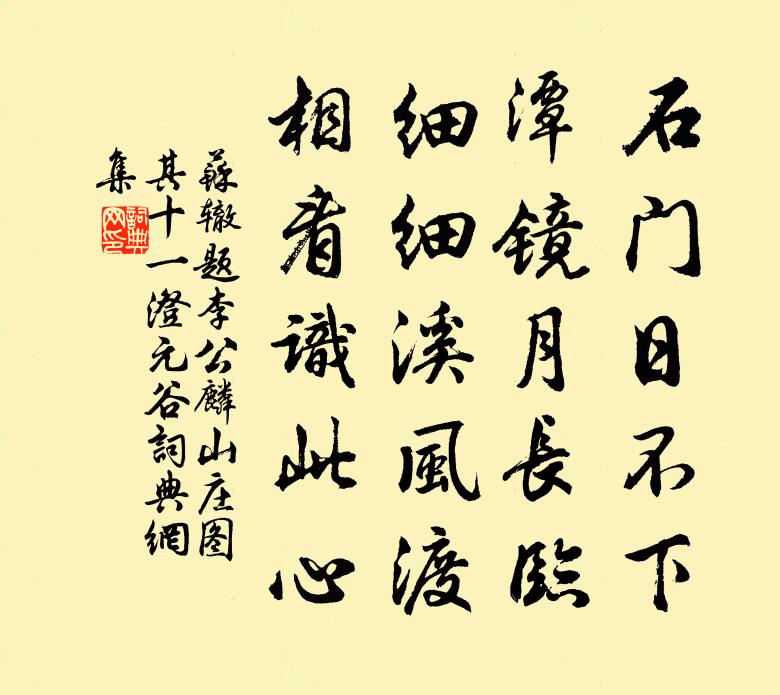 石门日不下
潭镜月長臨
细细溪風渡
相看識此心
蘇辙题李公麟山庄图
其十一澄元谷詞典網
集
詞典網印